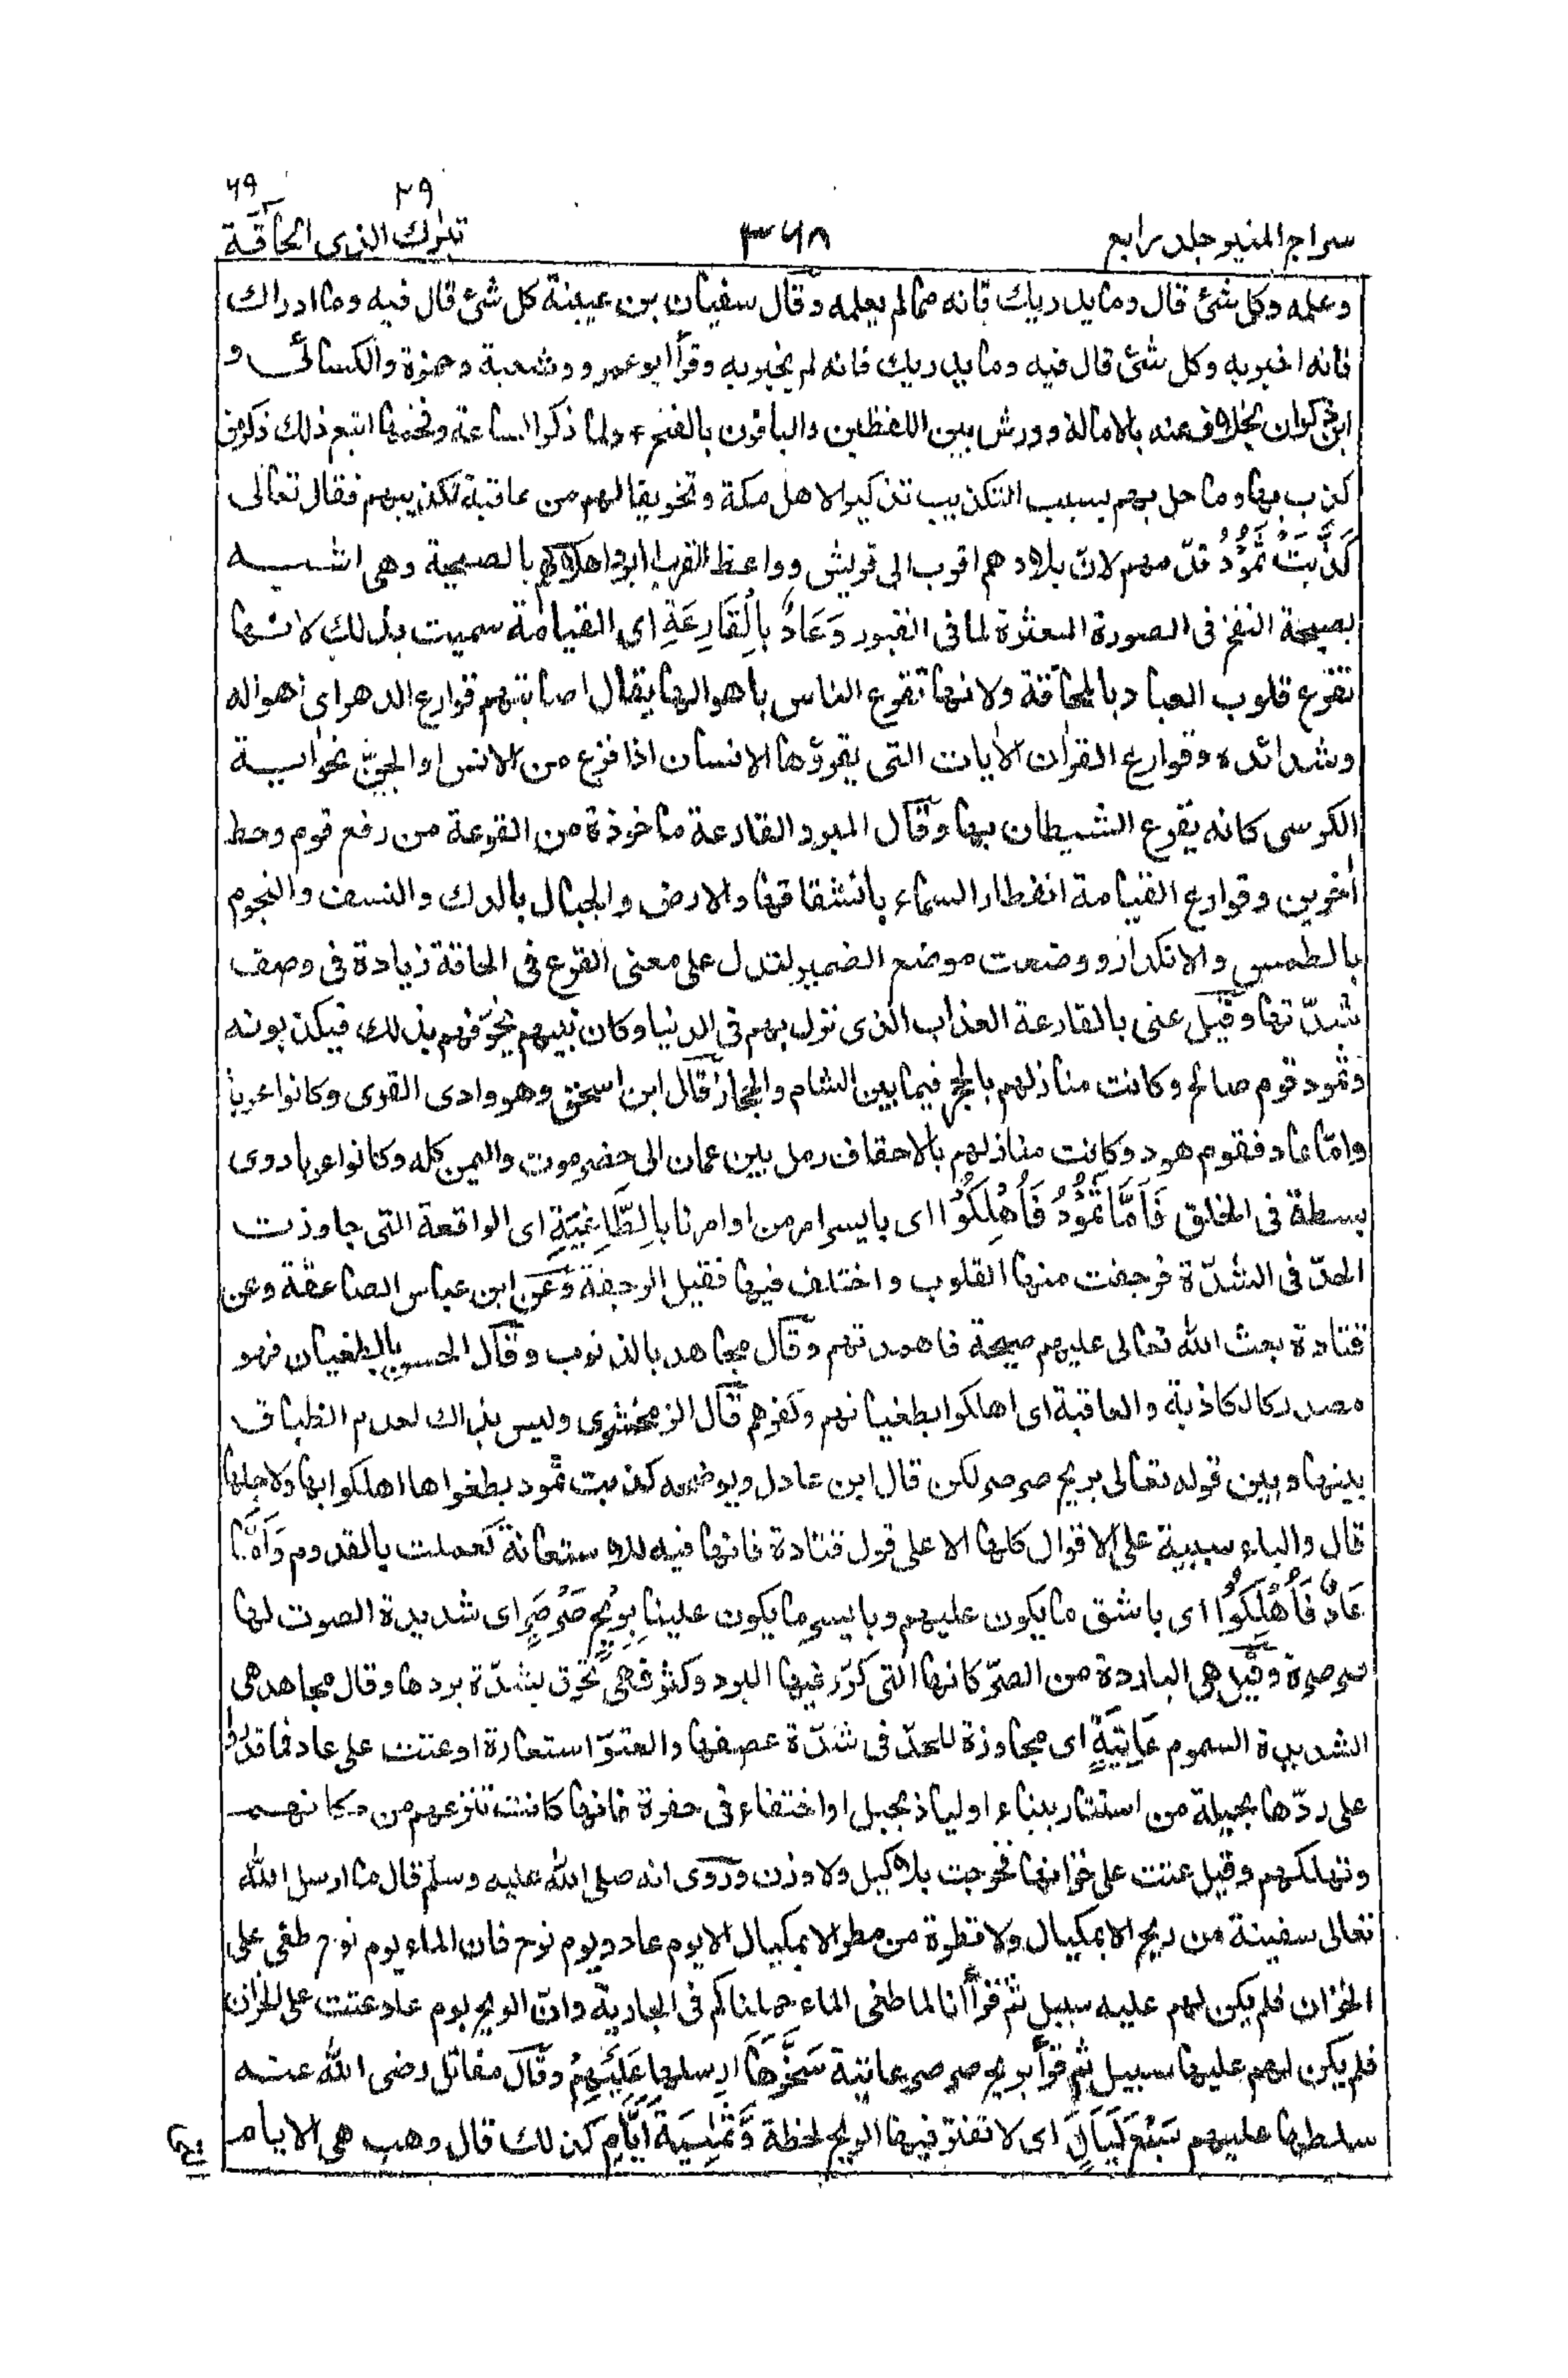 ٦٩
٢٩
سراج المنير جلد رابع
٣٦٨
تبٰرك الذى الحآقة
وعلمه وكل شئ قال وما يدريك فانه مما لم يعلمه وقال سفيان بن عيينة كل شئ قال فيه وما ادراك
فانه اخبر به وكل شئ قال فيه وما يدريك فانه لم يخبر به وقرأ ابو عمرو وشعبة وحمزة والكسائى و
ابن ذكوان بخلاف عنه بالامالة وورش بين اللفظين والباقون بالفتح ولما ذكر الساعة وفخمها اتبع ذلك ذكر من
كذب بها وما حل بهم بسبب التكذيب تذكيرا لاهل مكة وتخويفا لهم من عاقبة تكذيبهم فقال تعالى
كَذَّبَتْ ثَمُوْدُ قدّمهم لانّ بلادهم اقرب الى قريش وواعظ القرب اكبر واهلاكهم بالصيحة وهى اشبه
بصيحة النفخ فى الصورة المبعثرة لما فى القبور وَعَادٌ بِالْقَارِعَةِ اى القيامة سميت بذلك لانها
تقرع قلوب العباد بالمخافة ولانها تقرع الناس باهوالها يقال اصابتهم قوارع الدهر اى اهواله
وشدائده وقوارع القرآن الآيات التى يقرؤها الانسان اذا فزع من الانس او الجنّ نحو آية
الكرسى كانه يقرع الشيطان بها وقال المبرد القارعة ماخوذة من القرعة من رفع قوم وحط
آخرين وقوارع القيامة انفطار السماء بانشقاقها والارض والجبال بالدك والنسف والنجوم
بالطمس والانكدار ووضعت موضع الضمير لتدل على معنى القرع فى الحاقة زيادة فى وصف
شدّتها وقيل عنى بالقارعة العذاب الذى نزل بهم فى الدنيا وكان نبيهم يخوّفهم بذلك فيكذبونه
وثمود قوم صالح وكانت منازلهم بالحجر فيما بين الشام والحجاز قال ابن اسحٰق وهو وادى القرى وكانوا عربا
وامّا عاد فقوم هود وكانت منازلهم بالاحقاف رمل بين عمان الى حضرموت واليمن كله وكانوا عربا ذوى
بسطة فى الخلق فَاَمَّا ثَمُوْدُ فَاُهْلِكُوْا اى بايسر امر من اوامرنا بِالطَّاغِيَةِ اى الواقعة التى جاوزت
الحدّ فى الشدّة فرجفت منها القلوب واختلف فيها فقيل الرجفة وعن ابن عباس الصاعقة وعن
قتادة بعث الله تعالى عليهم صيحة فاهمدتهم وقال مجاهد بالذنوب وقال الحسن بالطغيان فهو
مصدر كالكاذبة والعاقبة اى اهلكوا بطغيانهم وكفرهم قال الزمخشرى وليس بذاك لعدم الطباق
بينها وبين قوله تعالى بريح صرصر لكن قال ابن عادل ويوضحه كذبت ثمود بطغواها اهلكوا بها ولاجلها
قال والباء سببية على الاقوال كلها الا على قول قتادة فانها فيه للاستعانة كعملت بالقدوم وَاَمَّا
عَادٌ فَاُهْلِكُوْا اى باشق ما يكون عليهم وبايسر ما يكون علينا بِرِيْحٍ صَرْصَرٍ اى شديدة الصوت لها
صرصرة وقيل هى الباردة من الصرّ كانها التى كرّر فيها البرد وكثر فهى تحرق بشدّة بردها وقال مجاهد هى
الشديدة السموم عَاتِيَةٍ اى مجاوزة للحدّ فى شدّة عصفها والعتوّ استعارة او عتت على عاد فما قدروا
على ردّها بحيلة من استتار ببناء او لياذ بجبل او اختفاء فى حفرة فانها كانت تنزعهم من مكانهم
وتهلكهم وقيل عتت على خزانها فخرجت بلا كيل ولا وزن وروى انه صلى الله عليه وسلم قال ما ارسل الله
تعالى سفينة من ريح الا بمكيال ولا قطرة من مطر الا بمكيال الا يوم عاد ويوم نوح فان الماء يوم نوح طغى على
الخزان فلم يكن لهم عليه سبيل ثم قرأ انا لما طغى الماء حملناكم فى الجارية وانّ الريح يوم عاد عتت على الخزان
فلم يكن لهم عليها سبيل ثم قرأ بريح صرصر عاتية سَخَّرَهَا ارسلها عَلَيْهِمْ وقال مقاتل رضى الله عنه
سلطها عليهم سَبْعَ لَيَالٍ اى لا تفتر فيها الريح لحظة وَّثَمٰنِيَةَ اَيَّامٍ كذلك قال وهب هى الايام